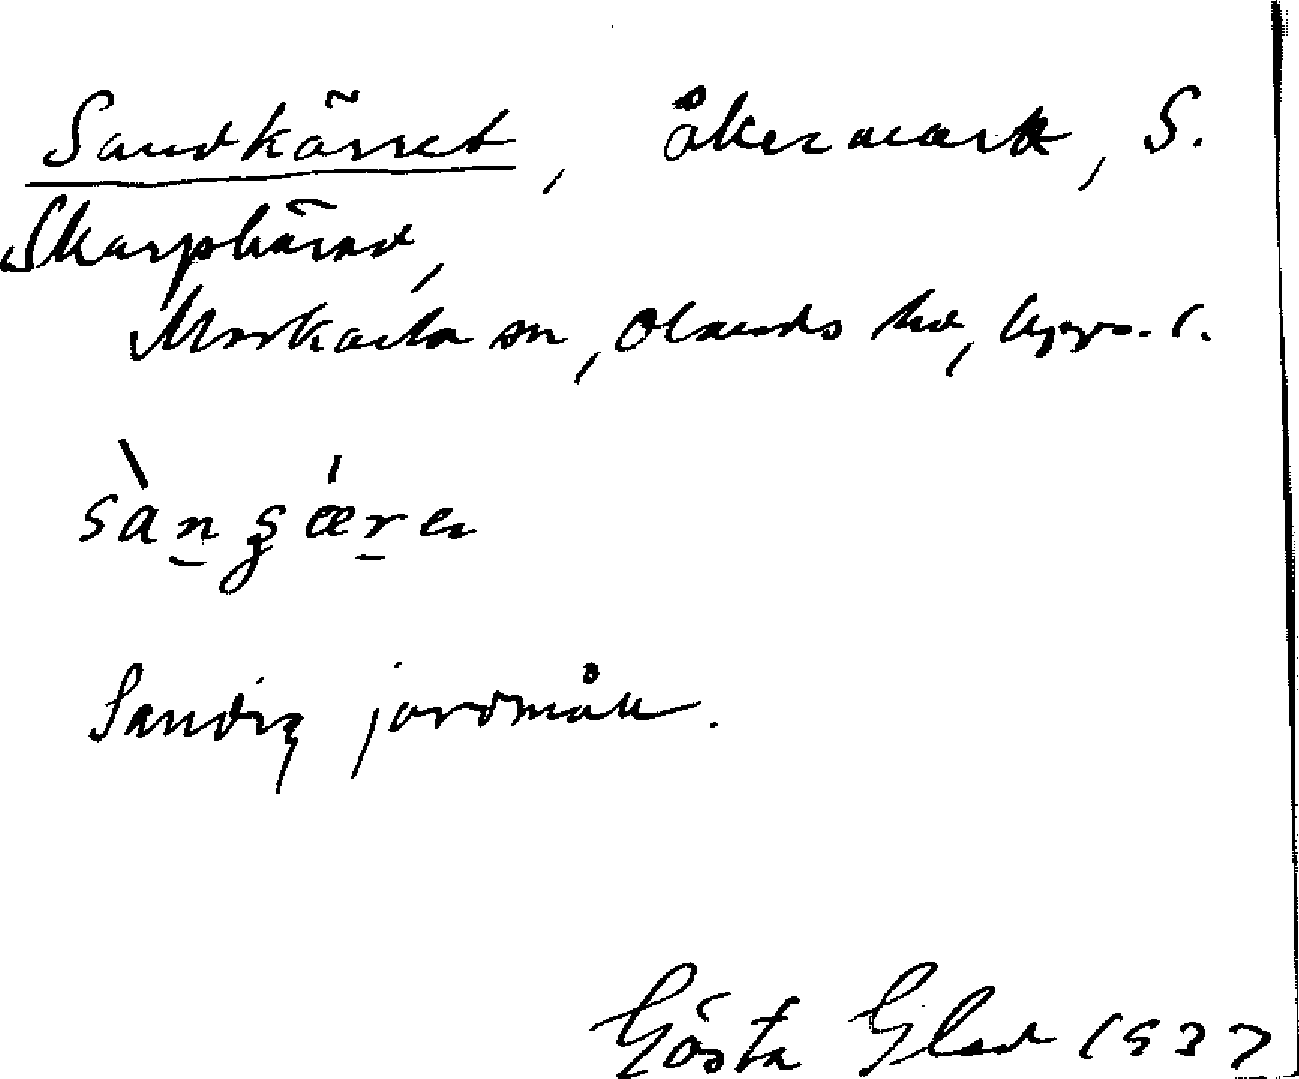 Sandkärret, åkermark, S.
Skarpbärad,
Morkarla sn, Olands hd, Upps. l.
sàngǽrer
Sandig jordmån.
Gösta Glad 1937